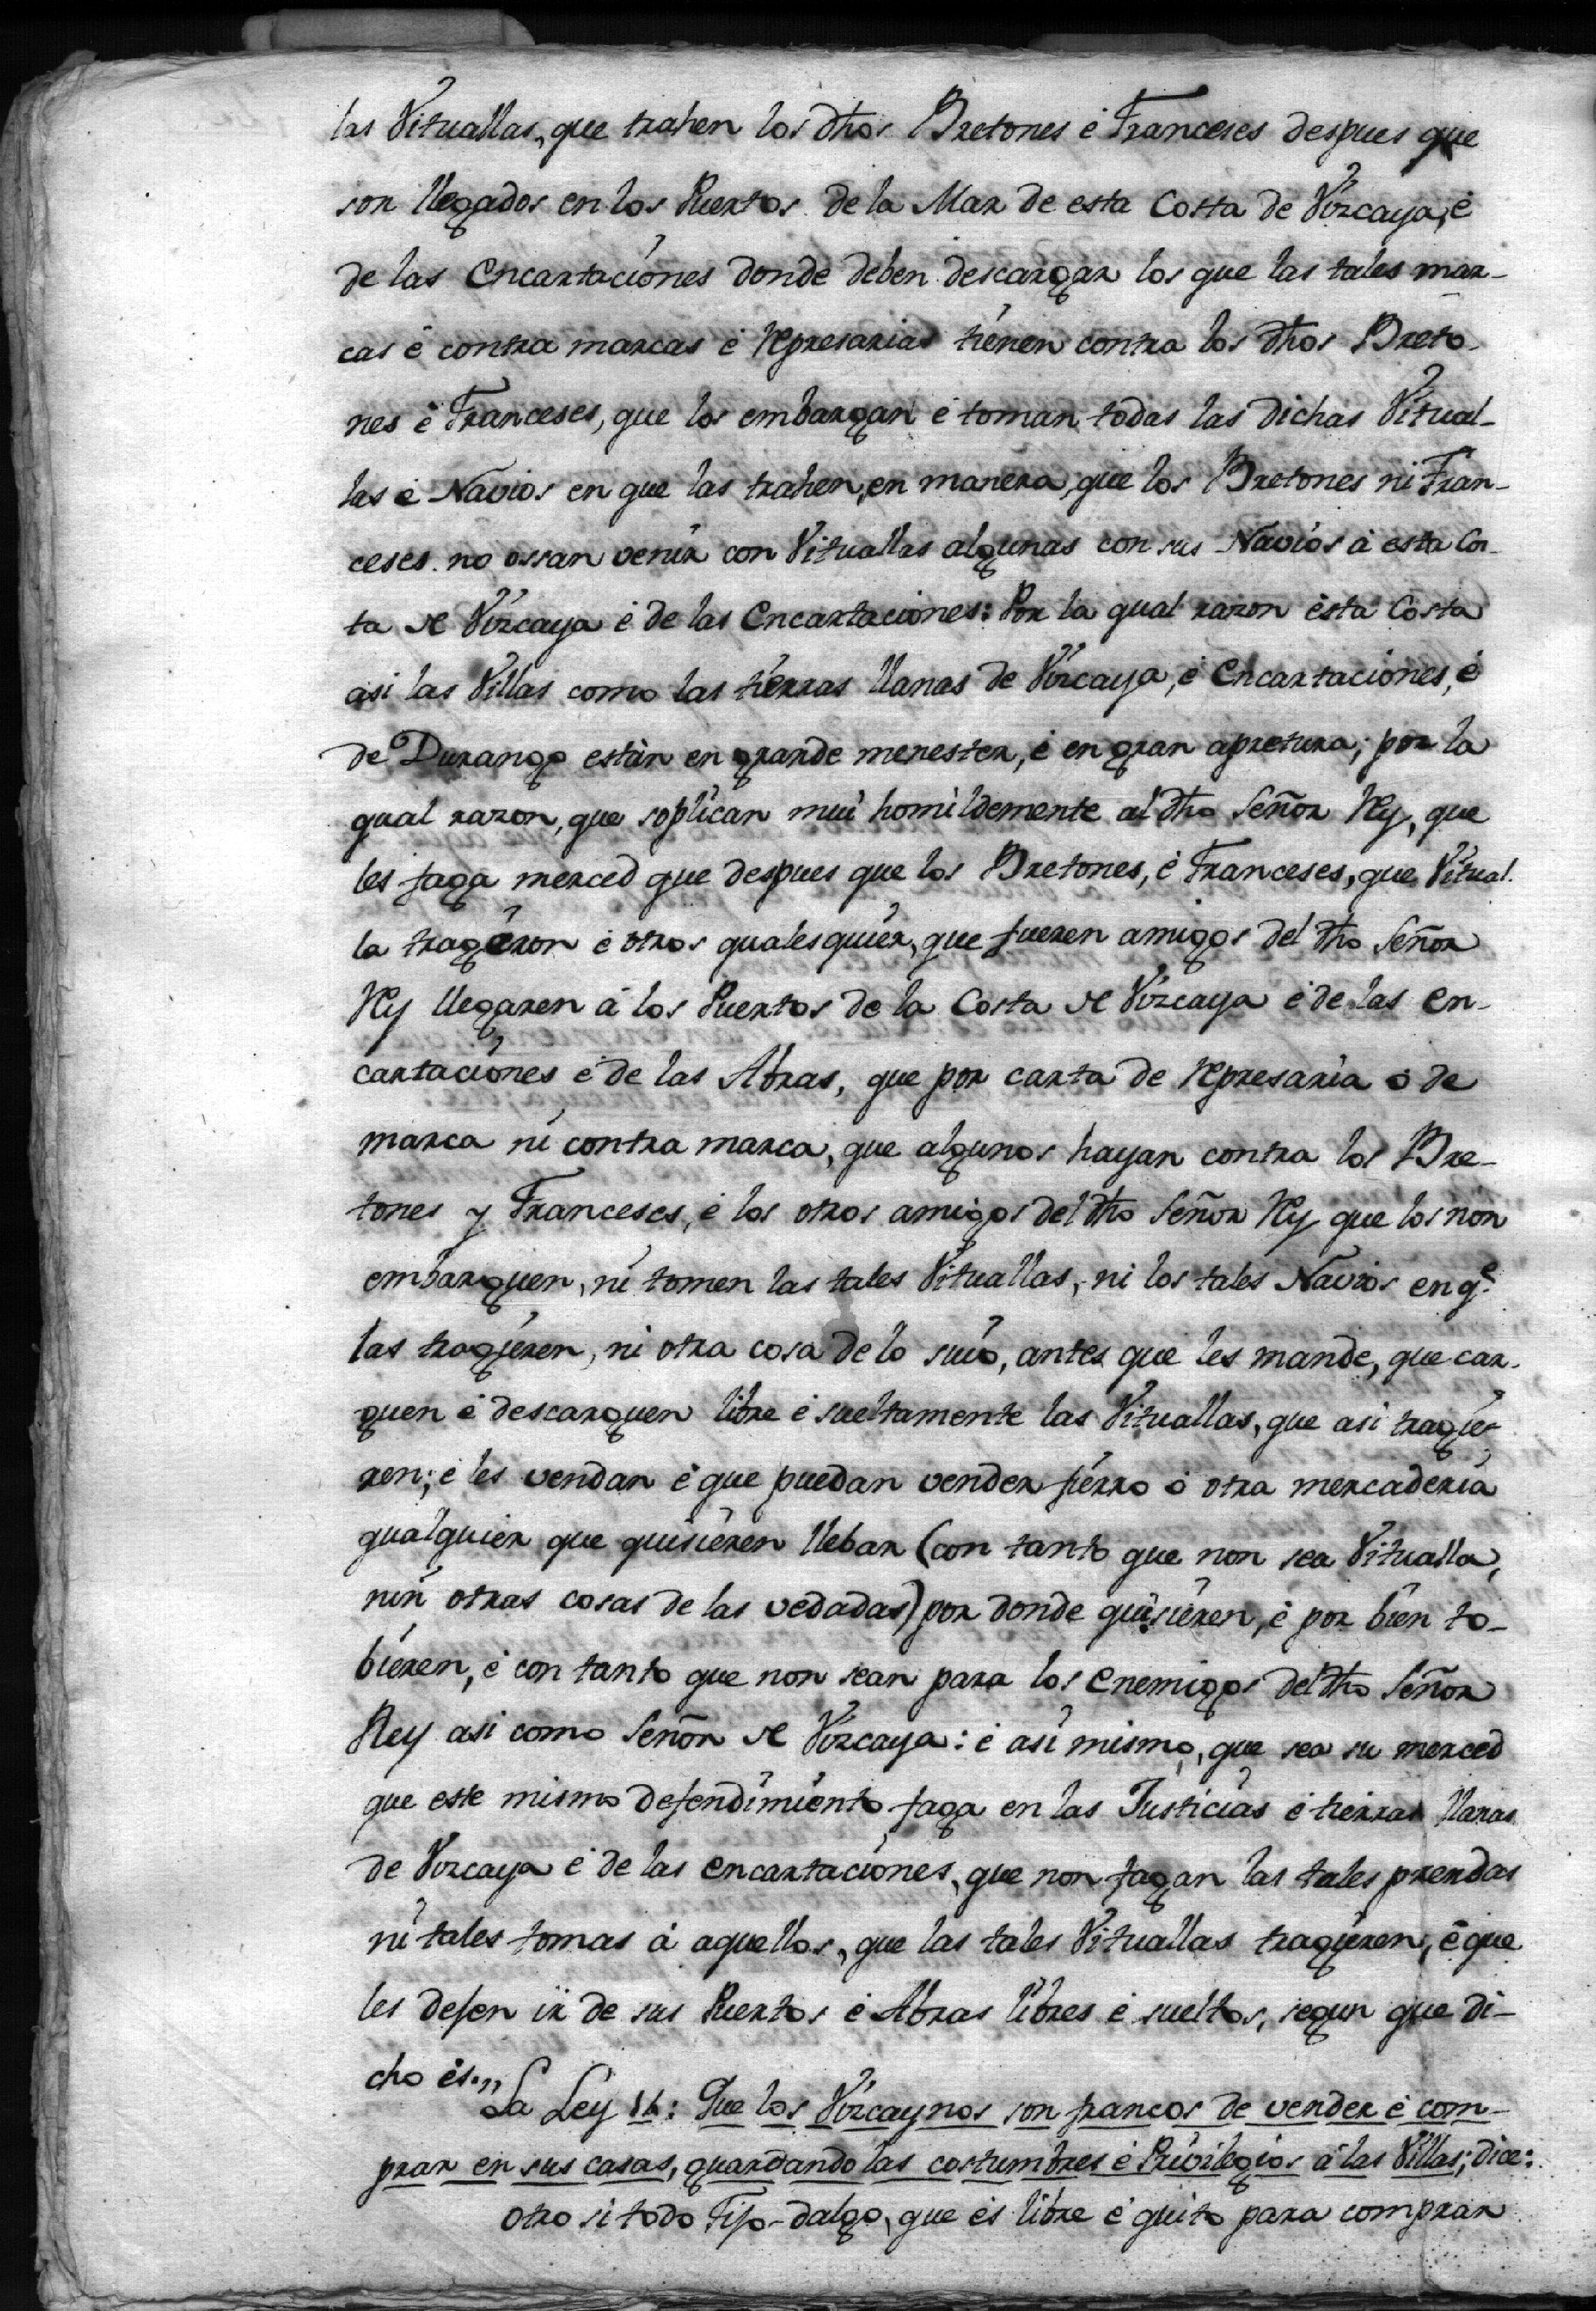 las Vituallas, que trahen los dhos Bretones é Franceses despues que
son llegados en los Puertos de la Mar de esta Costa de Vizcaya, é
de las Encartaciones donde deben descargar los que las tales mar-
cas é contra marcas é represarias tienen contra los dhos Breto-
nes é Franceses, que los embargan é toman todas las dichas Vitual-
las é Navios en que las trahen, en manera, que los Bretones ni Fran-
ceses no ossan venir con Vituallas algunas con sus Navios á esta Cos-
ta de Vizcaya é de las Encartaciones: Por la qual razon ésta Costa
asi las Villas como las tierras llanas de Vizcaya, é Encartaciones, é
de Durango están en grande menester, é en gran apretura; por la
qual razon, que soplican mui homildemente al dho Señor Rey, que
les faga merced que despues que los Bretones, é Franceses, que Vitual-
la trageron é otros qualesquier, que fueren amigos del dho Señor
Rey llegaren á los Puertos de la Costa de Vizcaya é de las en-
cartaciones é de las Abras, que por carta de represaria ó de
marca ni contra marca, que algunos hayan contra los Bre-
tones y Franceses, é los otros amigos del dho Señor Rey que los non
embarguen, ni tomen las tales Vituallas, ni los tales Navios en qe
las tragieren, ni otra cosa de lo suio, antes que les mande, que car-
guen é descarguen libre é sueltamente las Vituallas, que asi tragie-
ren; é les vendan é que puedan vender fierro ó otra mercaderia
qualquier que quisieren llebar (con tanto que non sea Vitualla,
nin otras cosas de las vedadas) por donde quisieren, é por bien to-
bieren, é con tanto que non sean para los Enemigos del dho Señor
Rey asi como Señor de Vizcaya: é asi mismo, que sea su merced
que este mismo defendimiento faga en las Justicias é tierras llanas
de Vizcaya é de las encartaciones, que non fagan las tales prendas
ni tales tomas á aquellos, que las tales Vituallas tragieren, é que
les defen ir de sus Puertos é Abras libres é sueltos, segun que di-
cho és.„
La Ley 11: Que los Vizcaynos son francos de vender é com-
prar en sus casas, guardando las costumbres é Privilegios á las Villas; dice:
Otro si todo Fijo-dalgo, que és libre é quito para comprar